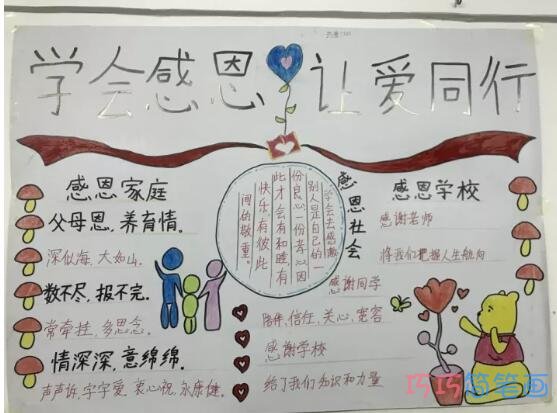 学会感恩 让爱同行
感恩家庭
父母恩,养育情.
深似海,大如山.
数不尽,报不完.
常牵挂,多思念.
情深深,意绵绵.
声声诉,字字爱,衷心祝,永康健.
学会去感激
别人是自己的一
份良心一份孝心因
此才会有和睦有
快乐有彼此
间的敬重。
感恩社会
感恩学校
感谢老师
将我们把握人生航向
感谢同学
陪伴、信任、关心、宽容
感谢学校
给了我们知识和力量
巧巧简笔画